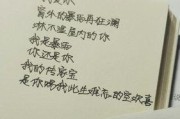 窗外的暴雨再狂澜
淋不湿屋内的你
我是暴雨
你还是你
是你赐我此生难忘的空欢喜